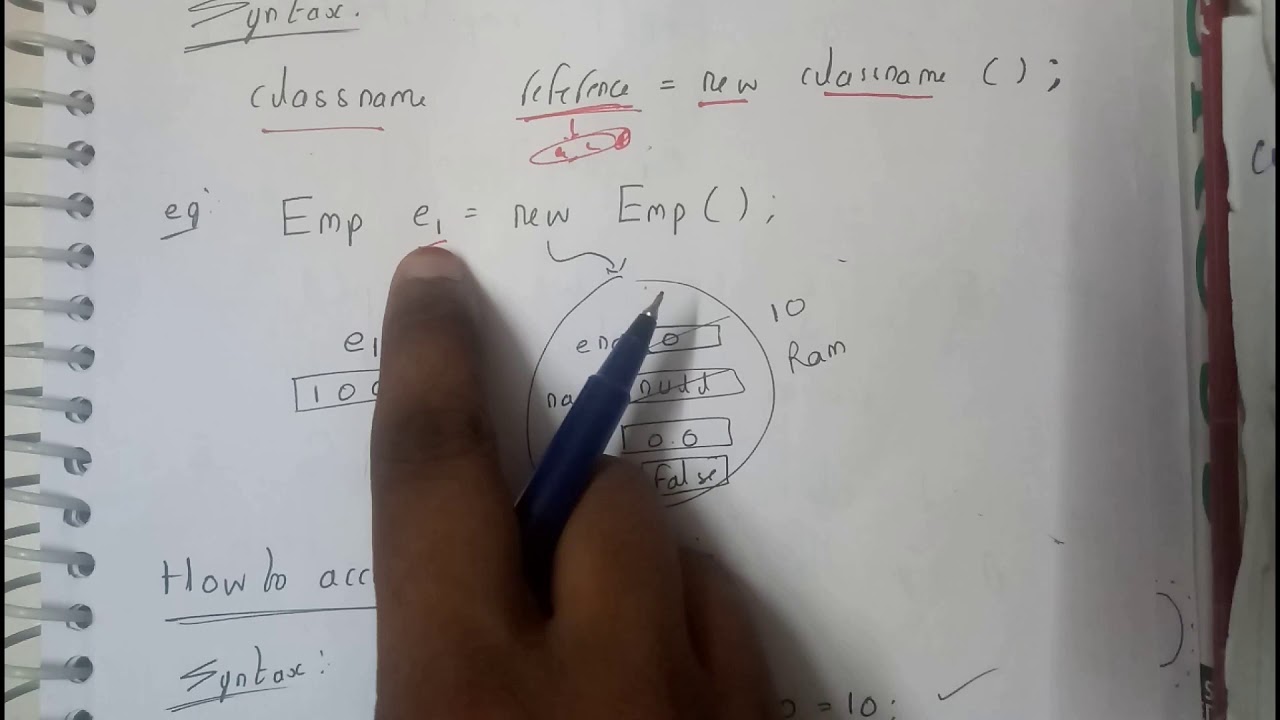 Syntax.
classname reference = new classname ( ) ;
eg: Emp e1 = new Emp ( ) ;
10
e1 0
Ram
100 null
0.0
False
How to acc
Syntax:
= 10 ;